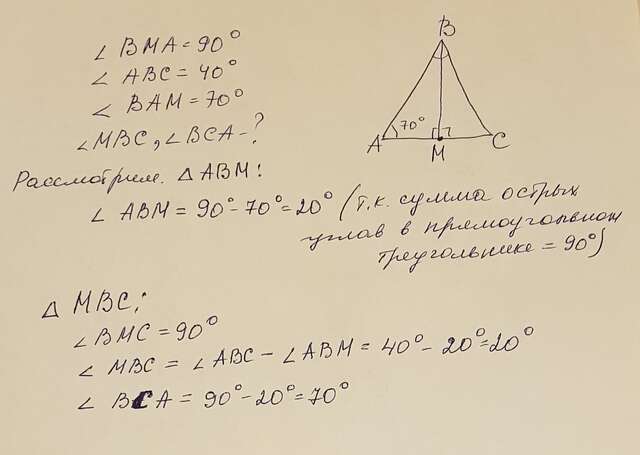 ∠ BMA = 90°
∠ ABC = 40°
∠ BAM = 70°
∠MBC, ∠BCA - ?
B
70°
A
M
C
Рассмотрим. △ ABM:
∠ ABM = 90° - 70° = 20° (т.к. сумма острых
углав в прямоугольном
треугольнике = 90°)
△ MBC:
∠ BMC = 90°
∠ MBC = ∠ABC - ∠ABM = 40° - 20° = 20°
∠ BCA = 90° - 20° = 70°